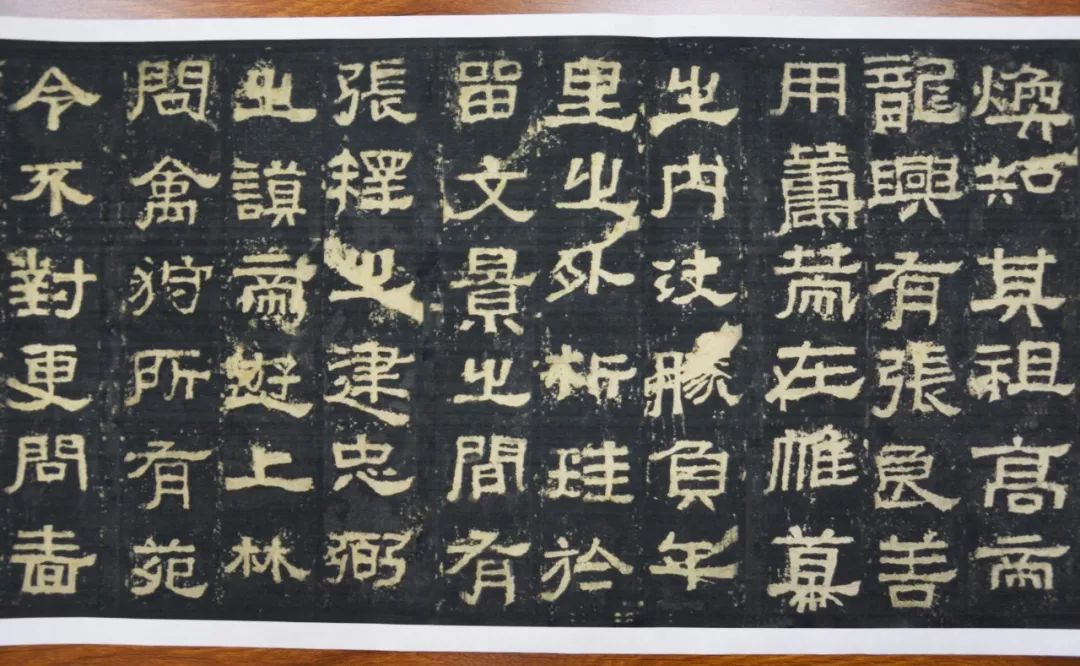 煥知其祖高帝
龍興有張良善
用籌策在帷幕
之内决勝負千
里之外析珪於
留文景之間有
張釋之建忠弼
之謨帝遊上林
問禽狩所有苑
令不對更問嗇